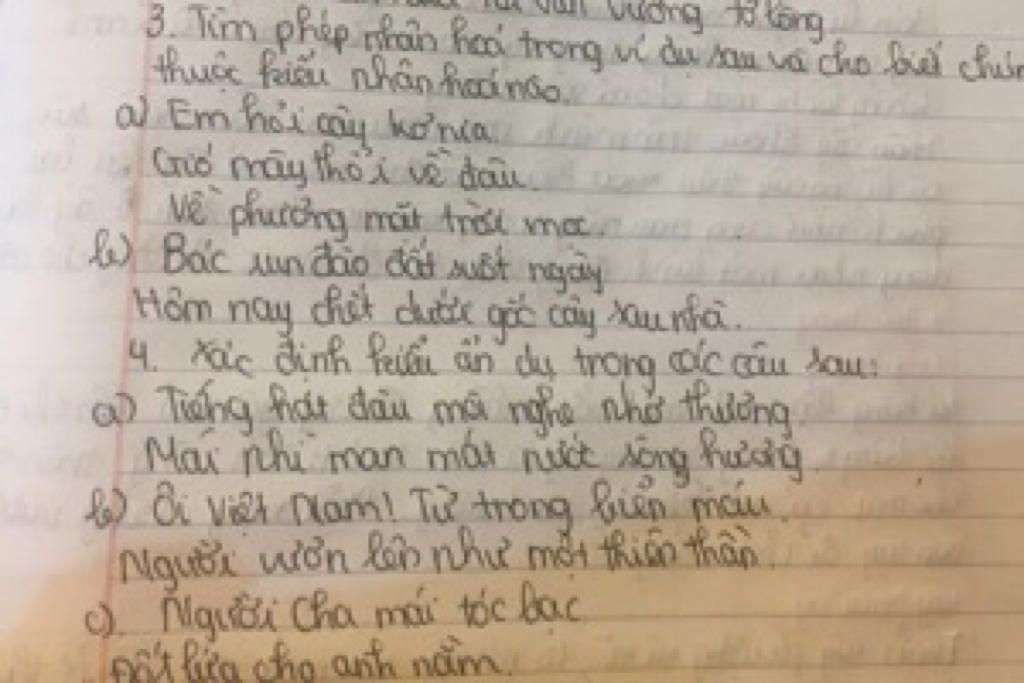 văn vương tơ lòng
3. Tìm phép nhân hoá trong ví dụ sau và cho biết chún
thuộc kiểu nhân hoá nào.
a) Em hỏi cây kơnia.
Gió mây thổi về đâu.
Về phương mặt trời mọc.
b) Bác sun đào đất suốt ngày
Hôm nay chết dưới gốc cây sau nhà.
4. Xác định kiểu ẩn dụ trong các câu sau:
a) Tiếng hát đâu mà nghe nhớ thương
Mái nhì man mát nước sông hương.
b) Ôi Việt Nam! Từ trong biển máu.
Người vươn lên như một thiên thần.
c) Người Cha mái tóc bạc
Đốt lửa cho anh nằm.